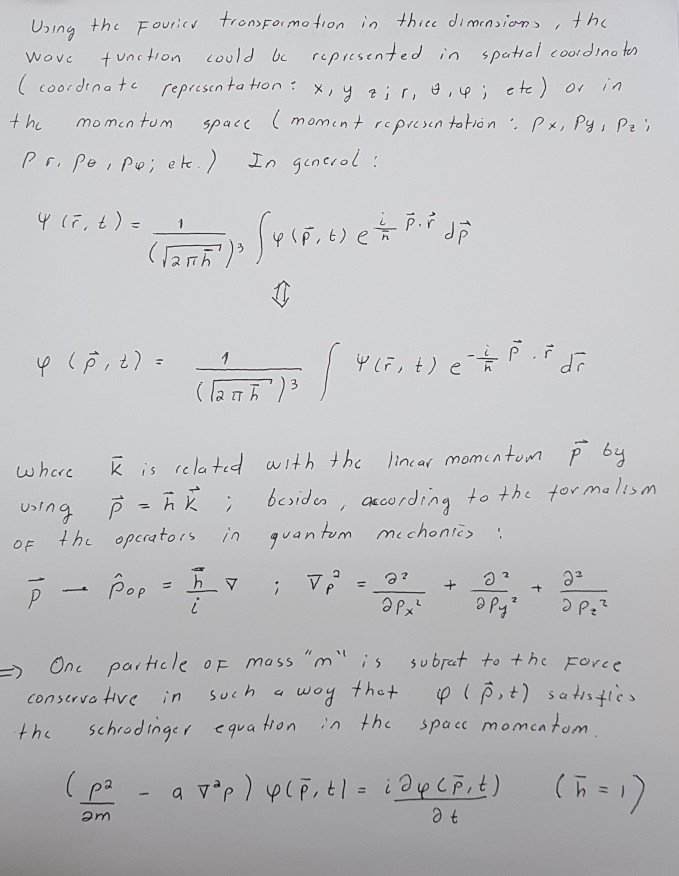 Using the Fourier transformation in three dimensions, the
wave function could be represented in spatial coordinates
(coordinate representation: x, y z; r, θ, φ; etc) or in
the momentum space (moment representation: Px, Py, Pz;
Pr, Pθ, Pφ; etc.) In general:
Ψ(r̄, t) = 1/(√2πħ)³ ∫ φ(p⃗, t) e^{i/ħ p⃗·r⃗} dp⃗
⇕
φ(p⃗, t) = 1/(√2πħ)³ ∫ Ψ(r̄, t) e^{-i/ħ p⃗·r̄} dr̄
where k̄ is related with the linear momentum p⃗ by
using p⃗ = ħk⃗ ; besides, according to the formalism
of the operators in quantum mechonics :
p⃗ → p̂op = ħ/i ∇ ; ∇p² = ∂²/∂Px² + ∂²/∂Py² + ∂²/∂Pz²
=> One particle of mass "m" is subject to the Force
conservative in such a way that φ(p⃗,t) satisfies
the schrodinger equation in the space momentum.
(p²/2m - a ∇²p) φ(p̄, t) = i ∂φ(p̄, t)/∂t (ħ = 1)